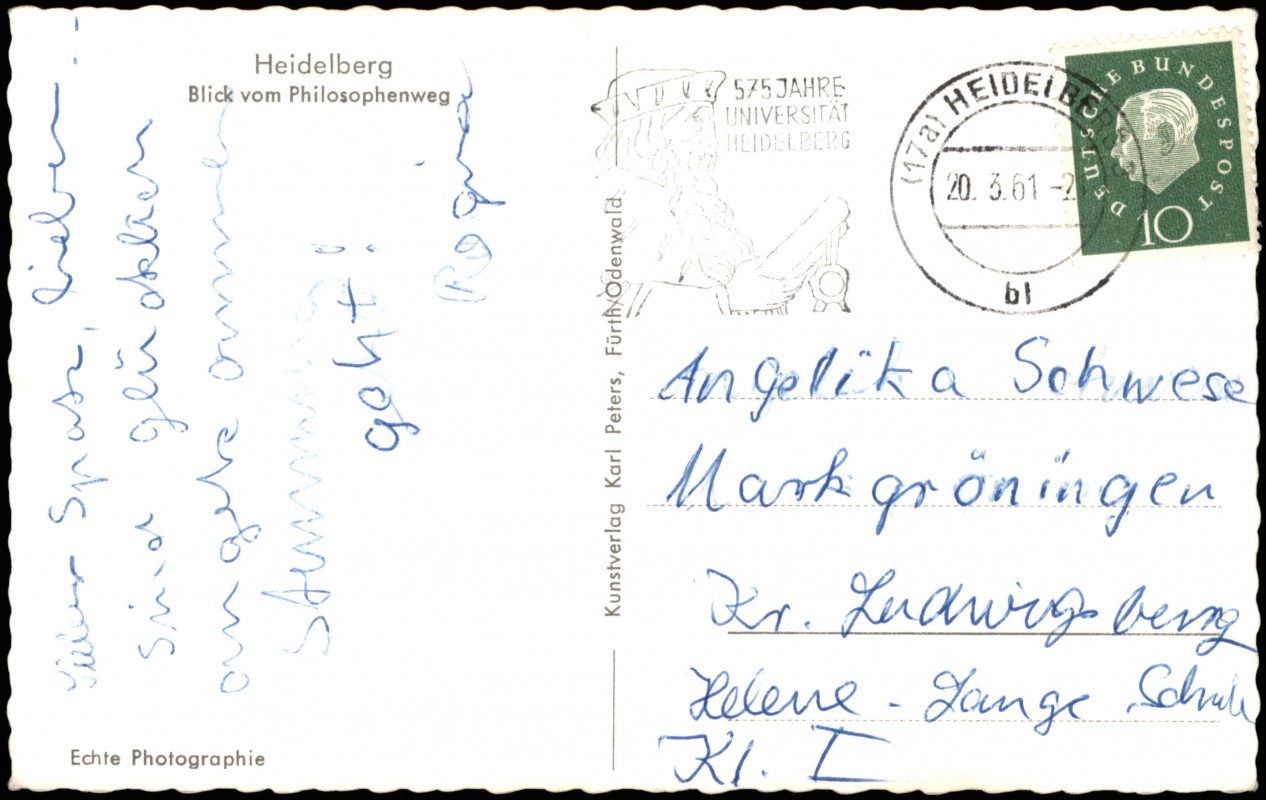 Heidelberg
Blick vom Philosophenweg
Lieber Spatz, lieber
Sind glücklich
angekommen
Stimmung:
geht!
Regina
Echte Photographie
Kunstverlag Karl Peters, Fürth/Odenwald
575 JAHRE
UNIVERSITÄT
HEIDELBERG
(17a) HEIDELBERG
20. 3. 61 -2
bl
DEUTSCHE BUNDESPOST
10
Angelika Schwese
Markgröningen
Kr. Ludwigsberg
Helene-Lange Schule
Kl. I